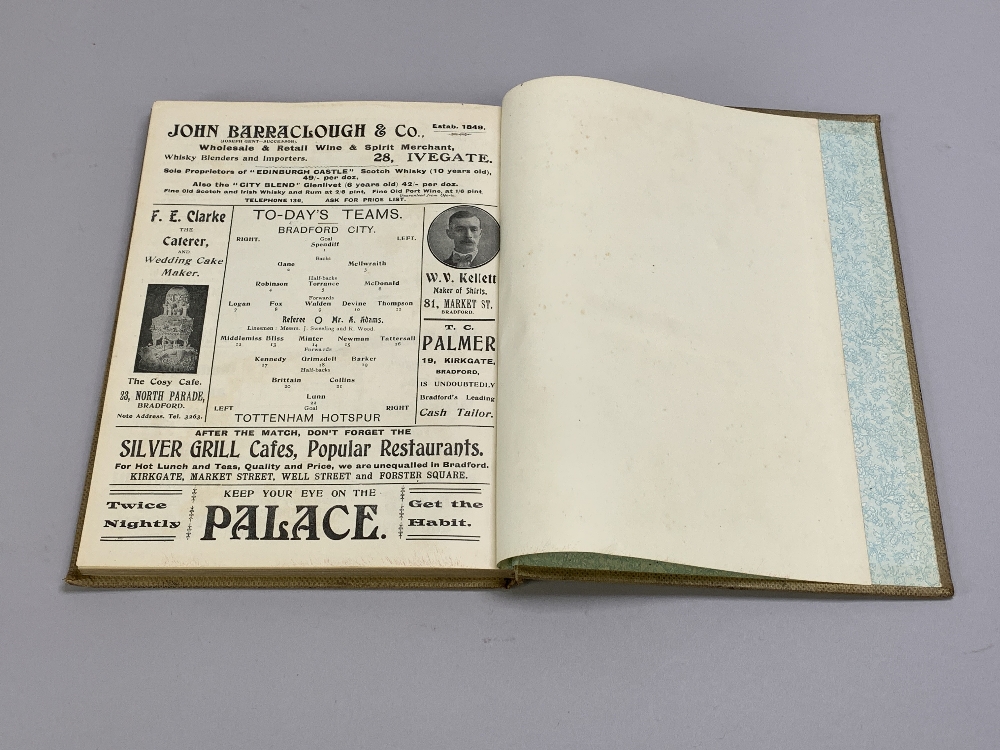 JOHN BARRACLOUGH & Co., Estab. 1849.
(JOSEPH GENT—SUCCESSOR).
Wholesale & Retail Wine & Spirit Merchant,
Whisky Blenders and Importers. 28, IVEGATE.
Sole Proprietors of "EDINBURGH CASTLE" Scotch Whisky (10 years old),
49/- per doz.
Also the "CITY BLEND" Glenlivet (6 years old) 42/- per doz.
Fine Old Scotch and Irish Whisky and Rum at 2/6 pint, Fine Old Port Wine, at 1/6 pint
TELEPHONE 138, ASK FOR PRICE LIST.
F. E. Clarke
THE
Caterer,
AND
Wedding Cake
Maker.
The Cosy Cafe.
23, NORTH PARADE,
BRADFORD.
Note Address. Tel. 3263.
TO-DAY'S TEAMS.
BRADFORD CITY.
RIGHT. Goal LEFT.
Spendiff
1
Backs
Gane McIlwraith
2 3
Half-backs
Robinson Torrance McDonald
4 5 6
Forwards
Logan Fox Walden Devine Thompson
7 8 9 10 11
Referee O Mr. A. Adams.
Linesmen: Messrs. J. Sweeling and R. Wood.
Middlemiss Bliss Minter Newman Tattersall
12 13 14 15 16
Forwards
Kennedy Grimsdell Barker
17 18 19
Half-backs
Brittain Collins
20 21
Lunn
22
LEFT Goal RIGHT
TOTTENHAM HOTSPUR
W.V. Kellett
Maker of Shirts.
81, MARKET ST.
BRADFORD.
T. C.
PALMER
19, KIRKGATE,
BRADFORD,
IS UNDOUBTEDLY
Bradford's Leading
Cash Tailor.
AFTER THE MATCH, DON'T FORGET THE
SILVER GRILL Cafes, Popular Restaurants.
For Hot Lunch and Teas, Quality and Price, we are unequalled in Bradford.
KIRKGATE, MARKET STREET, WELL STREET and FORSTER SQUARE.
Twice
Nightly
KEEP YOUR EYE ON THE
PALACE.
Get the
Habit.